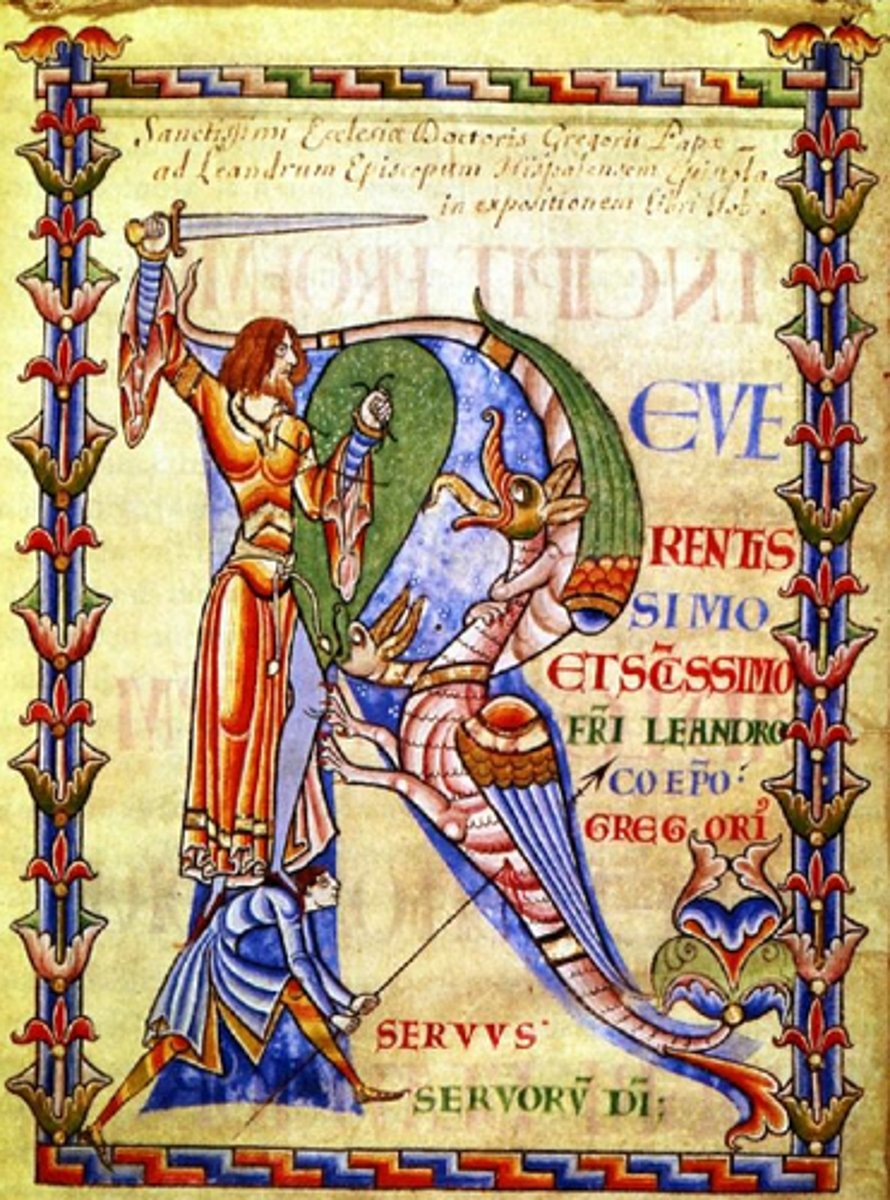 Sanctissimi Ecclesiæ Doctoris Gregorii Papæ
ad Leandrum Episcopum Hispalensem Epistola
in expositionem libri Iob.
REVE
RENTIS
SIMO
ET SC̄ISSIMO
FR̄I LEANDRO
COEP̄O:
GREGORI᾿
SERVVS
SERVORV̄ DĪ;